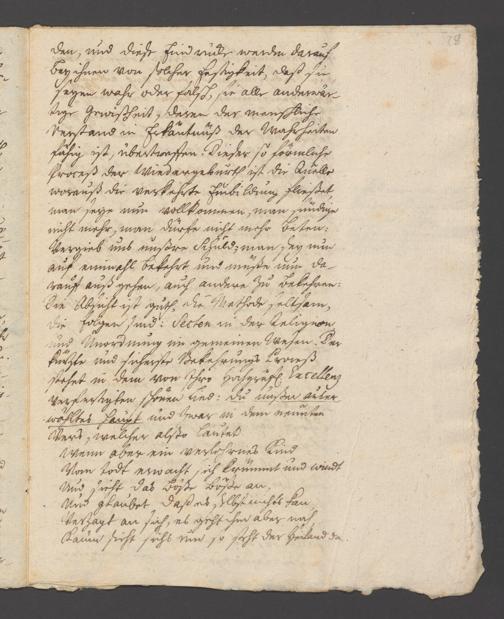 den, und diese Eindrücke werden darauf
bey ihnen von solcher Festigkeit, daß sie
seyen wahr oder falsch, sie alle anderwär-
tige Gewißheit, deren der menschliche
Verstand in Erkäntnüß der Wahrheiten
fähig ist, übertreffen. Dieser so förmliche
Proceß der Wiedergeburth ist die Quelle
woraus die verkehrte Einbildung fließet
man seye nun vollkommen, man sündige
nicht mehr, man dürfe nicht mehr beten:
Vergieb uns unsere Schuld; man sey nun
auf einmahl bekehrt und müße nun da-
rauf auß gehen, auch andere zu bekehren:
Die Absicht ist guth, die Methode seltsam,
die Folgen sind: Secten in der Religion
und Unordnung im gemeinen Wesen. Der
kürtzte und sicherste Bekehrungs Proceß
stehet in dem von Ihro Hochgräfl. Excellenz
verfertigten schönen Lied: Du unser auser
wähltes Haupt und zwar in dem neunten
Vers, welcher also lautet
Wenn aber ein verlohrnes Kind
Vom Todt erwacht, sich krümmt und windt
Und sieht das Böse böse an,
Und glaubet, daß es selbst nichts kan
Verzagt an sich, es geht ihm aber nah
Kaum sieht sichs um so steht der Heiland da.